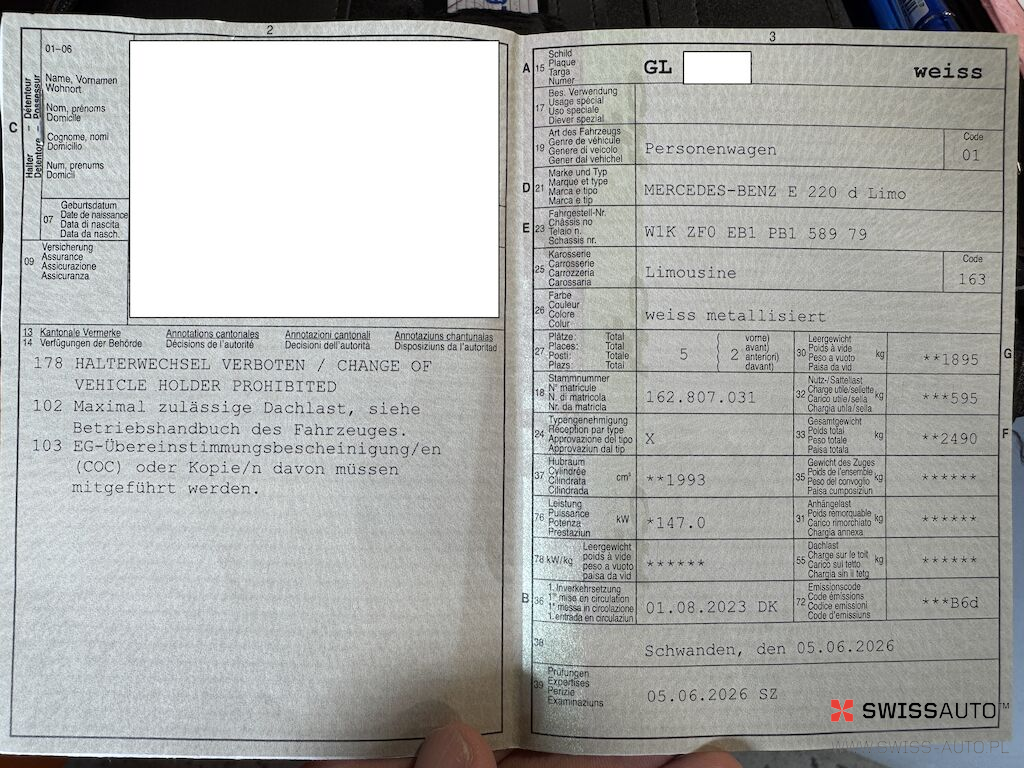 2
01–06
Name, Vornamen
Wohnort
Nom, prénoms
Domicile
Cognome, nomi
Domicilio
Num, prenums
Domicil
C
Halter – Détenteur
Detentore – Possessur
07
Geburtsdatum
Date de naissance
Data di nascita
Data da nasch.
09
Versicherung
Assurance
Assicurazione
Assicuranza
13 Kantonale Vermerke Annotations cantonales Annotazioni cantonali Annotaziuns chantunalas
14 Verfügungen der Behörde Décisions de l'autorité Decisioni dell'autorità Disposiziuns da l'autoritad
178 HALTERWECHSEL VERBOTEN / CHANGE OF
VEHICLE HOLDER PROHIBITED
102 Maximal zulässige Dachlast, siehe
Betriebshandbuch des Fahrzeuges.
103 EG-Übereinstimmungsbescheinigung/en
(COC) oder Kopie/n davon müssen
mitgeführt werden.
3
A 15
Schild
Plaque
Targa
Numer
GL weiss
17
Bes. Verwendung
Usage spécial
Uso speciale
Diever spezial
19
Art des Fahrzeugs
Genre de véhicule
Genere di veicolo
Gener dal vehichel
Personenwagen
Code
01
D 21
Marke und Typ
Marque et type
Marca e tipo
Marca e tip
MERCEDES-BENZ E 220 d Limo
E 23
Fahrgestell-Nr.
Châssis no
Telaio n.
Schassis nr.
W1K ZF0 EB1 PB1 589 79
25
Karosserie
Carrosserie
Carrozzeria
Carossaria
Limousine
Code
163
26
Farbe
Couleur
Colore
Colur
weiss metallisiert
27
Plätze: Total
Places: Total
Posti: Totale
Plazs: Total
5
2
vorne)
avant)
anteriori)
davant)
30
Leergewicht
Poids à vide
Peso a vuoto
Paisa da vid
kg
**1895
G
18
Stammnummer
N° matricule
N. di matricola
Nr. da matricla
162.807.031
32
Nutz-/Sattellast
Charge utile/sellette
Carico utile/sella
Chargia utila/sella
kg
***595
24
Typengenehmigung
Réception par type
Approvazione del tipo
Approvaziun dal tip
X
33
Gesamtgewicht
Poids total
Peso totale
Paisa totala
kg
**2490
F
37
Hubraum
Cylindrée
Cilindrata
Cilindrada
cm³
**1993
35
Gewicht des Zuges
Poids de l'ensemble
Peso del convoglio
Paisa cumposiziun
kg
******
76
Leistung
Puissance
Potenza
Prestaziun
kW
*147.0
31
Anhängelast
Poids remorquable
Carico rimorchiato
Chargia annexa
kg
******
78 kW/kg
Leergewicht
poids à vide
peso a vuoto
paisa da vid
******
55
Dachlast
Charge sur le toit
Carico sul tetto
Chargia sin il tetg
kg
******
B 36
1. Inverkehrsetzung
1re mise en circulation
1a messa in circolazione
1. entrada en circulaziun
01.08.2023 DK
72
Emissionscode
Code émissions
Codice emissioni
Code d'emissiuns
***B6d
38
Schwanden, den 05.06.2026
39
Prüfungen
Expertises
Perizie
Examinaziuns
05.06.2026 SZ
SWISSAUTO™
WWW.SWISS-AUTO.PL